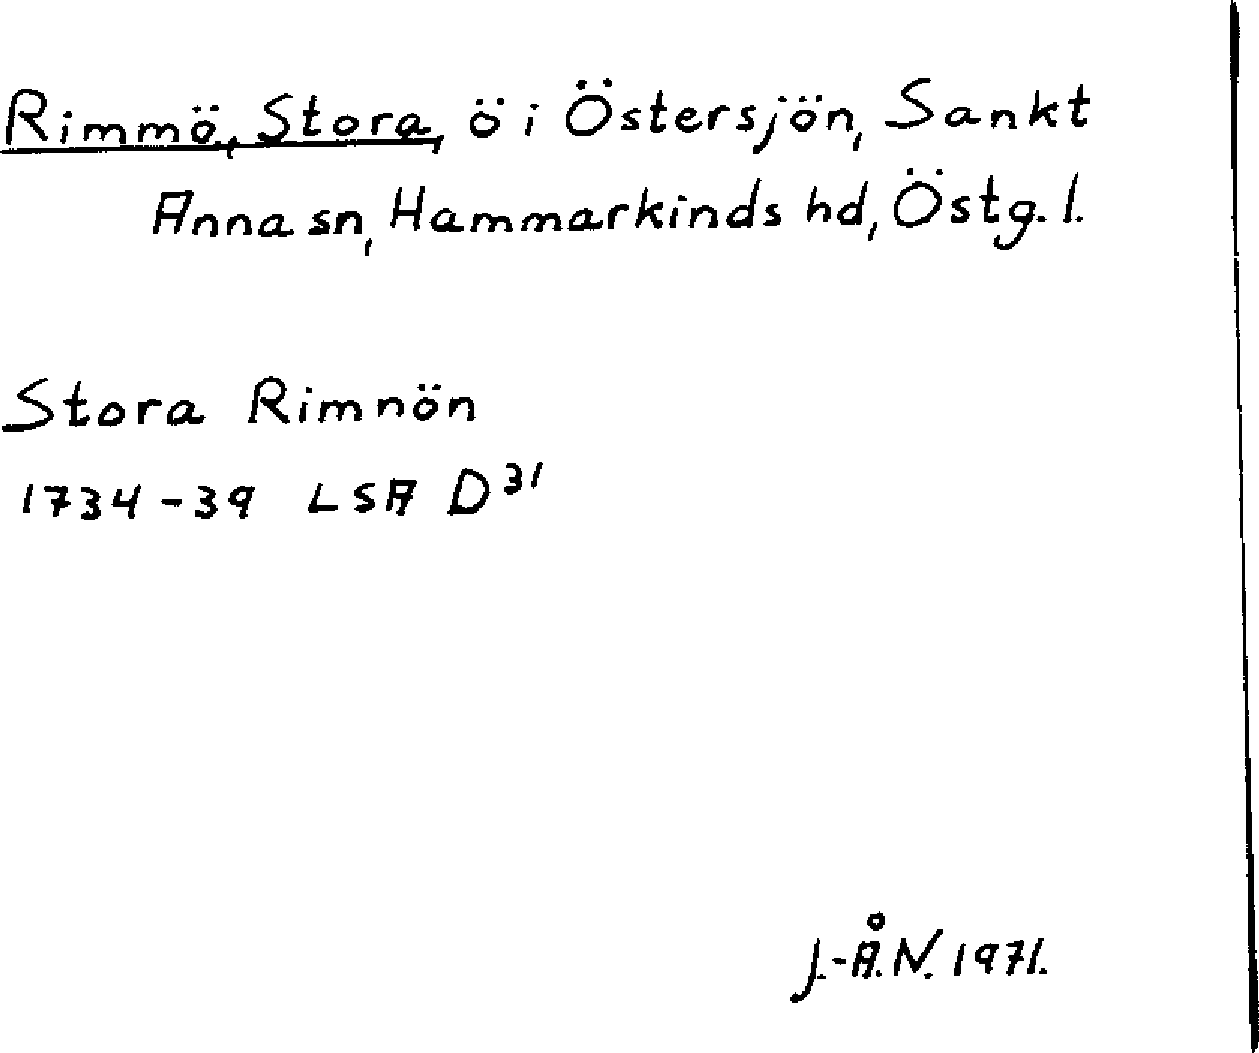 Rimmö, Stora, ö i Östersjön, Sankt
Anna sn, Hammarkinds hd, Östg. l.
Stora Rimnön
1734-39 LSA D³¹
J.-Å.N. 1971.